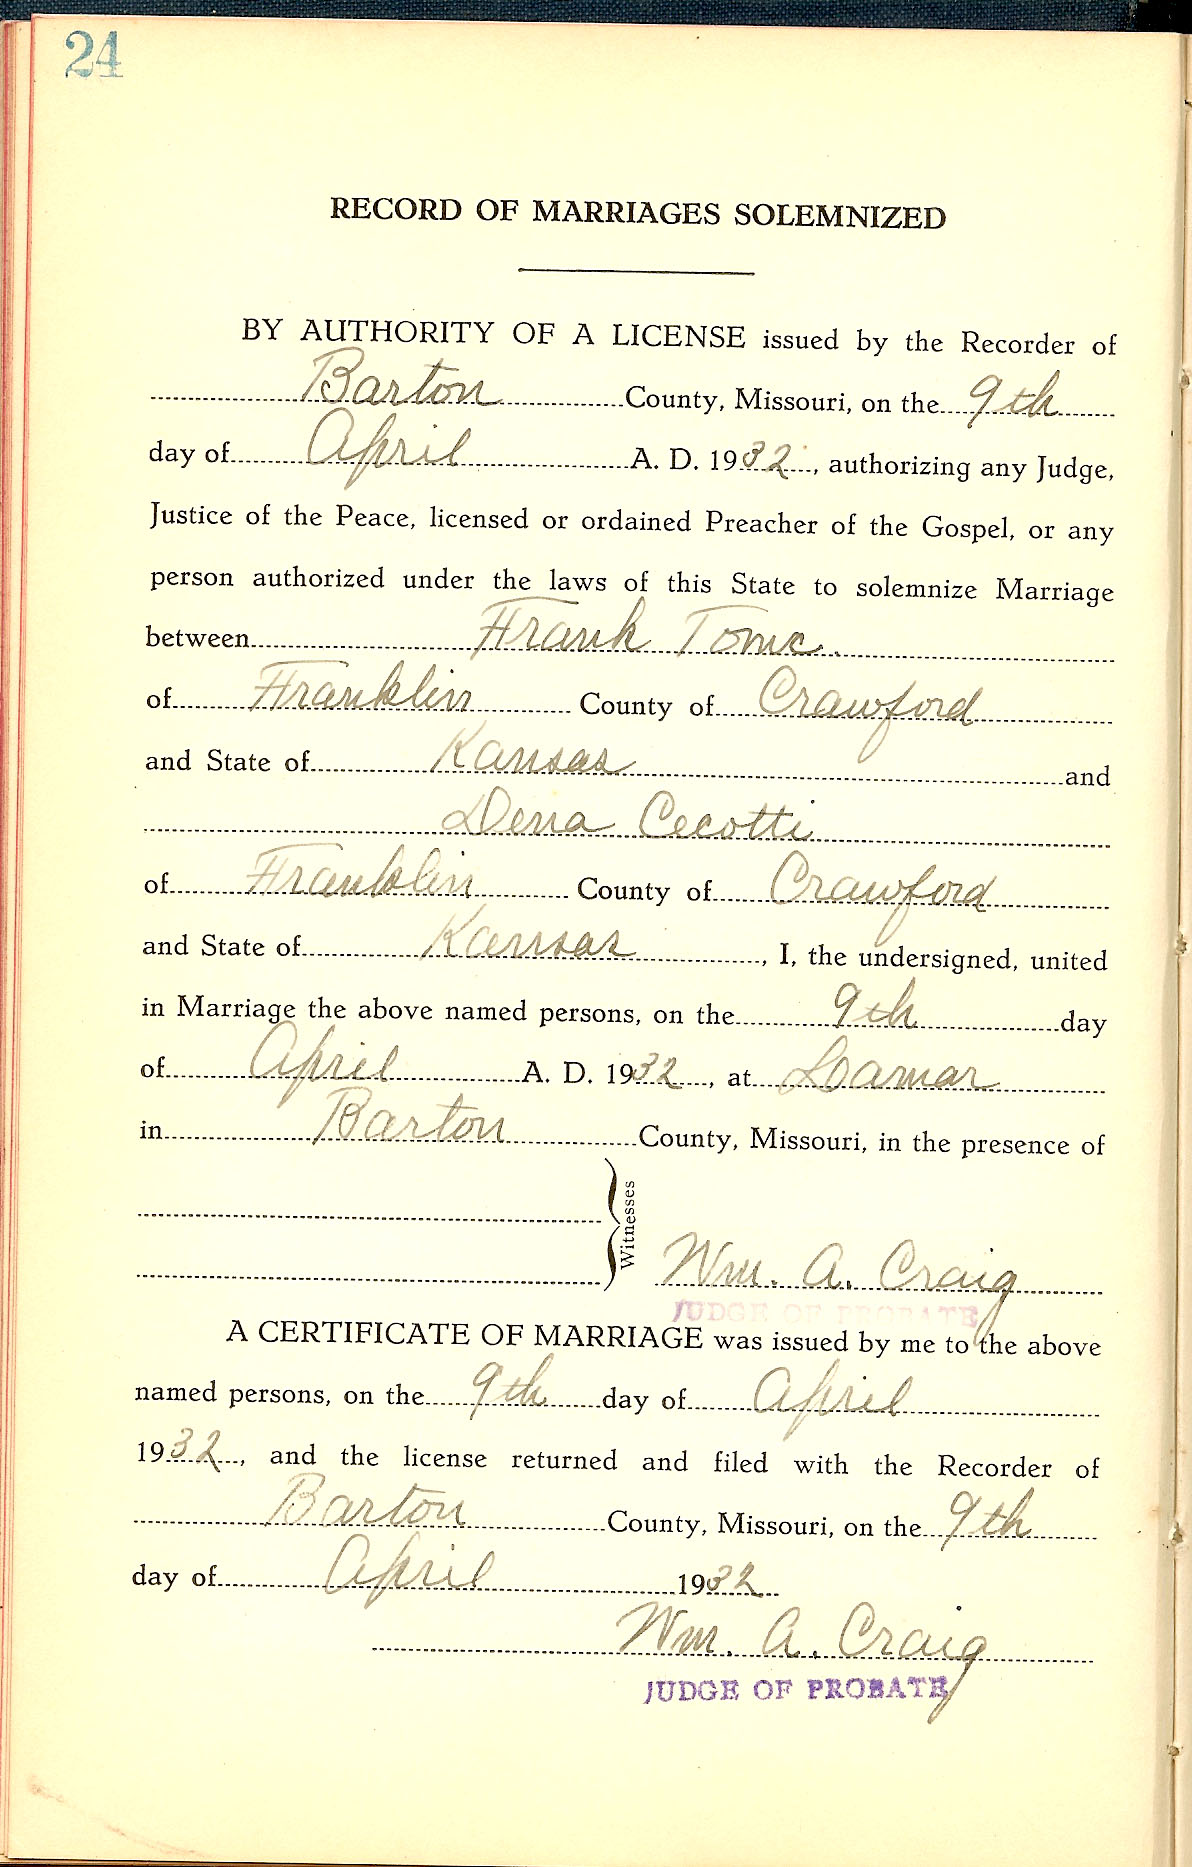 24
RECORD OF MARRIAGES SOLEMNIZED
BY AUTHORITY OF A LICENSE issued by the Recorder of
Barton County, Missouri, on the 9th
day of April A. D. 1932, authorizing any Judge,
Justice of the Peace, licensed or ordained Preacher of the Gospel, or any
person authorized under the laws of this State to solemnize Marriage
between Frank Tomc.
of Franklin County of Crawford
and State of Kansas and
Dena Cecotti
of Franklin County of Crawford
and State of Kansas, I, the undersigned, united
in Marriage the above named persons, on the 9th day
of April A. D. 1932, at Lamar
in Barton County, Missouri, in the presence of
Witnesses
Wm. A. Craig
JUDGE OF PROBATE
A CERTIFICATE OF MARRIAGE was issued by me to the above
named persons, on the 9th day of April
1932, and the license returned and filed with the Recorder of
Barton County, Missouri, on the 9th
day of April 1932
Wm. A. Craig
JUDGE OF PROBATE